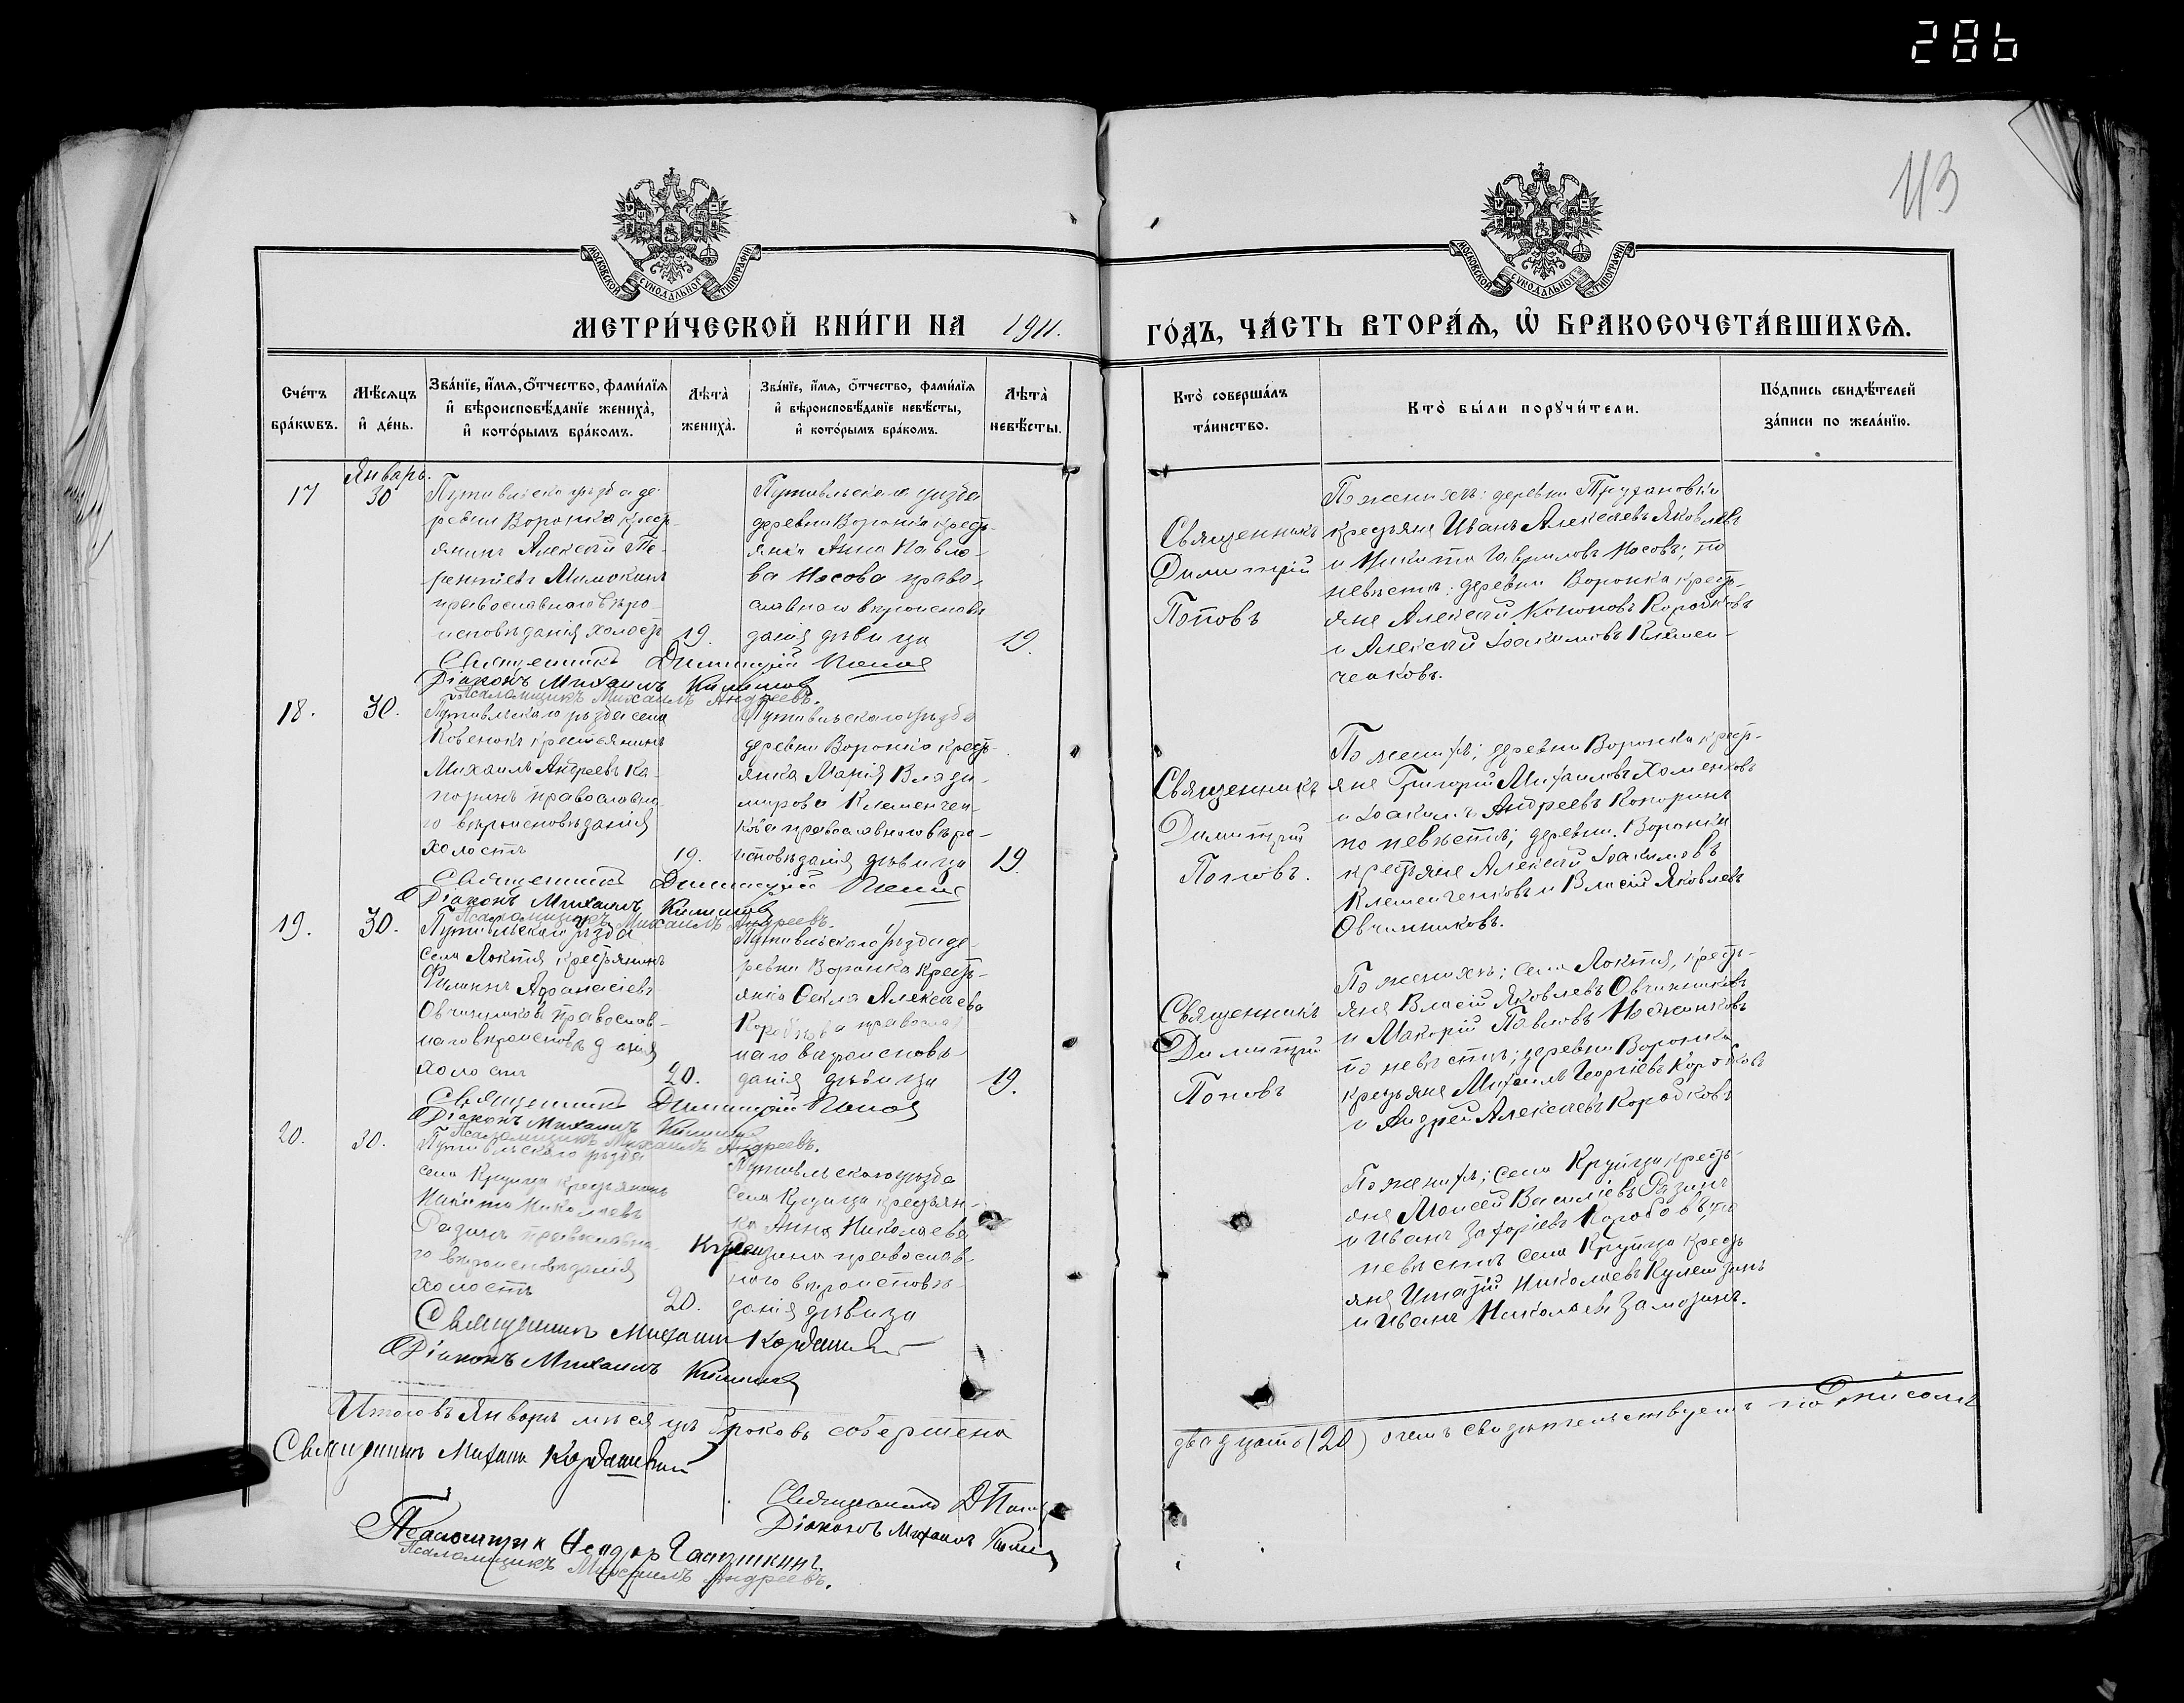 286
113
МОСКОВСКОЙ СѴНОДАЛЬНОЙ ТИПОГРАФІИ
МОСКОВСКОЙ СѴНОДАЛЬНОЙ ТИПОГРАФІИ
МЕТРИ́ЧЕСКОЙ КНИ́ГИ НА 1911.
ГО́ДЪ, ЧА́СТЬ ВТОРА́Ѧ, Ѽ БРАКОСОЧЕТА́ВШИХСѦ.
Сче́тъ бра́кѡвъ.
Мѣ́сяцъ и҆ де́нь.
Зва́нїе, и҆́мя, ѻ҆́тчество, фами́лїя
и҆ вѣроисповѣ́данїе жениха̀,
и҆ кото́рымъ бра́комъ.
Лѣ́та̀
жениха̀.
Зва́нїе, и҆́мя, ѻ҆́тчество, фами́лїя
и҆ вѣроисповѣ́данїе невѣ́сты,
и҆ кото́рымъ бра́комъ.
Лѣ́та̀
невѣ́сты.
Кто̀ соверша́лъ
та́инство.
Кто̀ бы́ли порꙋчи́тели.
По́дпись свидѣ́телей
за́писи по жела́нїю.
Январь.
17
30
Путивльскаго уѣзда де-
ревни Воронка крест-
янинъ Алексѣй Те-
рентіевъ Мамокинъ
православнаго вѣро-
исповѣданія холостъ
19.
Путивльскаго уѣзда
деревни Воронка кресть-
янка Анна Павло-
ва Носова право-
славнаго вѣроисповѣ
данія дѣвица
19.
Священникъ
Димитрій
Поповъ
По женихѣ: деревни Трухановки
крестьяне Иванъ Алексѣевъ Яковлевъ
и Никита Гавриловъ Носовъ; по
невѣстѣ: деревни Воронка кресть-
яне Алексѣй Кононовъ Коробковъ
и Алексѣй Іоакимовъ Клемен-
ченковъ.
Священникъ Димитрій Поповъ
Діаконъ Михаилъ
Псаломщикъ Михаилъ Андреевъ.
18.
30.
Путивльскаго уѣзда села
Ковенокъ крестьянинъ
Михаилъ Андреевъ Ка-
поринъ православна-
го вѣроисповѣданія
холостъ
19.
Путивльскаго уѣзда
деревни Воронка кресть-
янка Марія Влади-
мирова Клеменчен-
кова православнаго вѣро-
исповѣданія дѣвица
19.
Священникъ
Димитрій
Поповъ.
По женихѣ; деревни Воронка кресть-
яне Григорій Михаиловъ Хоменковъ
и Іоакимъ Андреевъ Копоринъ
по невѣстѣ; деревни Воронки
крестьяне Алексѣй Іоакимовъ
Клеменченковъ и Власій Яковлевъ
Овчинниковъ.
Священникъ Димитрій Поповъ
Діаконъ Михаилъ
Псаломщикъ Михаилъ Андреевъ.
19.
30.
Путивльскаго уѣзда
села Локтя крестьянинъ
Филипъ Афанасіевъ
Овчинниковъ православ-
наго вѣроисповѣданія
холостъ
20.
Путивльскаго уѣзда де-
ревни Воронка кресть-
янка Ѳекла Алексѣева
Коробкова православ
наго вѣроисповѣ-
данія дѣвица
19.
Священникъ
Димитрій
Поповъ
По женихѣ; села Локтя, кресть-
яне Власій Яковлевъ Овчинниковъ
и Макарій Павловъ
по невѣстѣ; деревни Воронка
крестьяне Михаилъ Георгіевъ Коробковъ
и Андрей Алексѣевъ Коробковъ
Священникъ Димитрій Поповъ
Діаконъ Михаилъ
Псаломщикъ Михаилъ Андреевъ.
20.
30.
Путивльскаго уѣзда
села Крупца крестьянинъ
Никита Николаевъ
Разинъ православна-
го вѣроисповѣданія
холостъ
20.
Путивльскаго уѣзда
села Крупца крестьян-
ка Анна Николаева
православ-
наго вѣроисповѣ-
данія дѣвица
По женихѣ; села Крупца, кресть-
яне Моисей Василіевъ Разинъ
и Иванъ Захаріевъ Коробовъ, по
невѣстѣ села Крупца кресть
яне Николаевъ
и Иванъ Николаевъ
Священникъ Михаилъ
Діаконъ Михаилъ
Итого въ Январѣ мѣсяцѣ браковъ совершено
двадцать (20) о чемъ свидѣтельствуемъ подписомъ
Священникъ Михаилъ
Священникъ Д Поповъ
Діаконъ Михаилъ
Псаломщик Ѳеодор
Псаломщикъ Михаилъ Андреевъ.